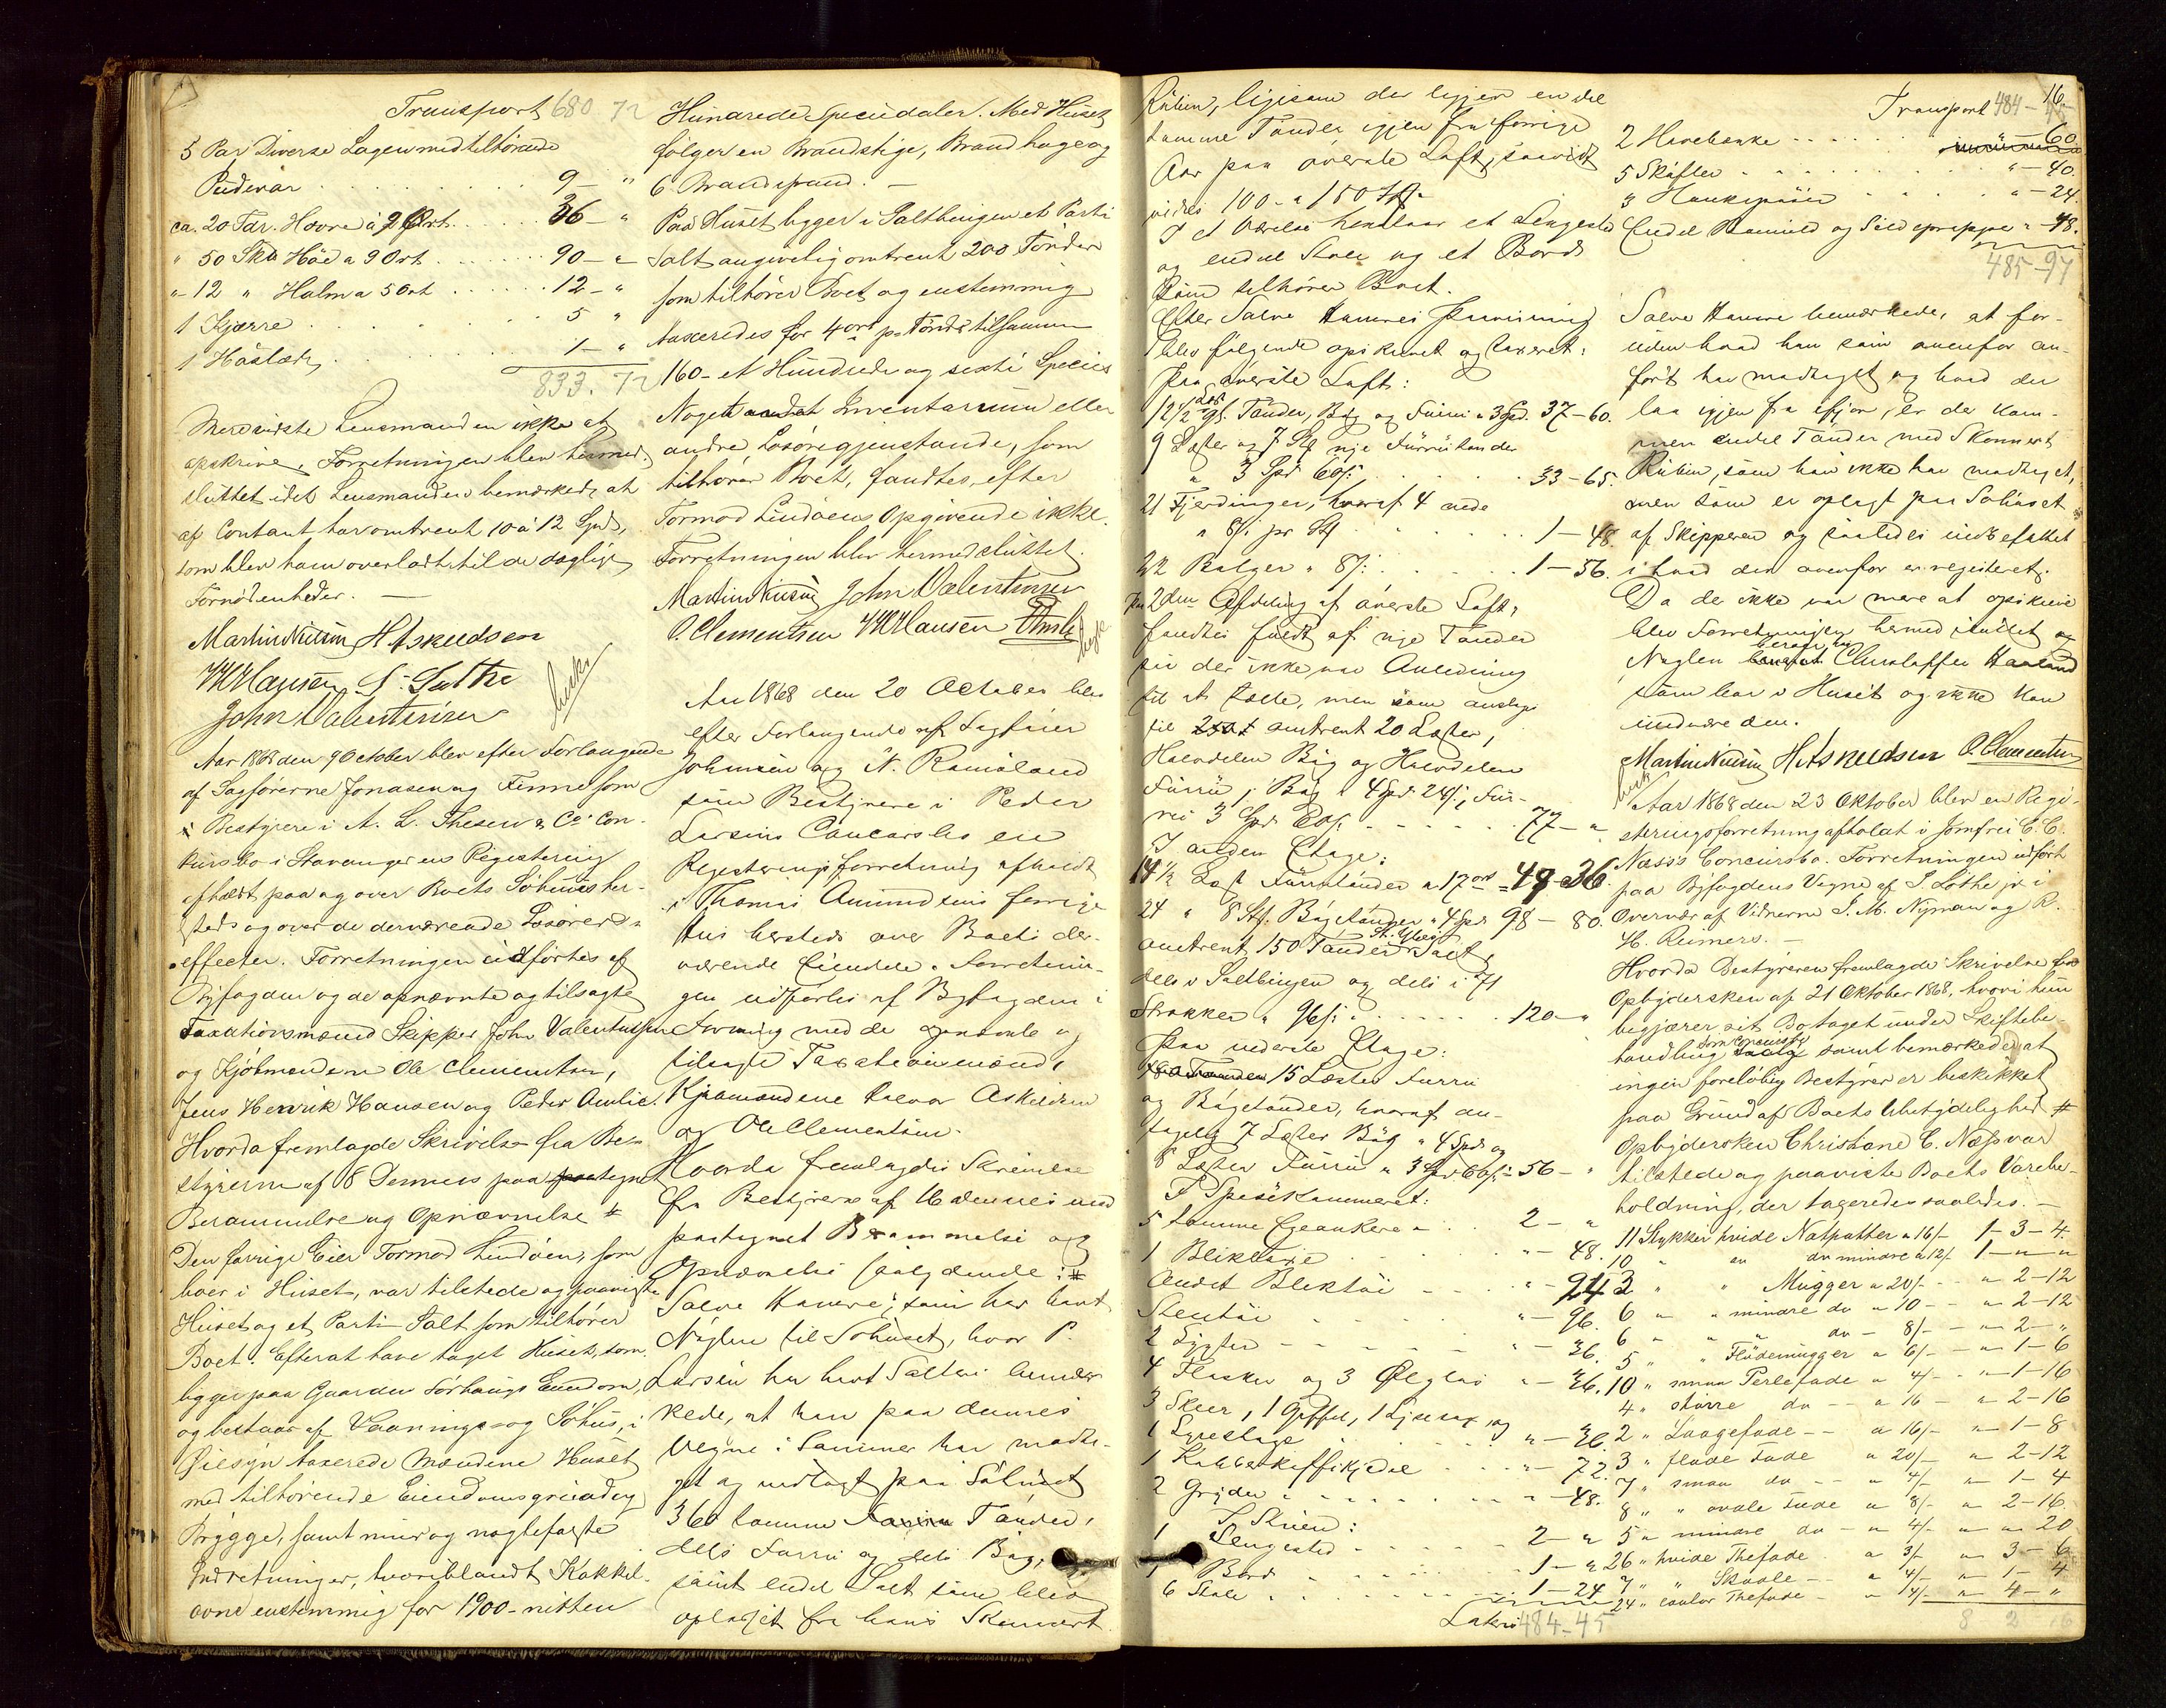 Transport 680 72
5 Par Diverse Lagen med tilhørende
Pudevar . . . . 9 - "
ca. 20 Tdr. Havre à 9 Ort . . . 36 - "
" 50 Sk℔ Höe a 9 Ort . . . 90 - "
" 12 " Halm a 5 Ort . . . 12 - "
1 Kjærre . . . 5 "
1 Höslæde . . . 1 - "
833. 72
Mere vidste Lensmanden ikke at
opskrive. Forretningen blev hermed
sluttet idet Lensmanden bemærkede at
af Contant har omtrent 10 à 12 Spd,
som blev ham overladt til de daglige
Fornødenheder. —
Martin Nielsen H Askeldsen
J H Hansen S. Løthe
John Valentinsen
Aar 1868 den 9 October blev efter Forlangende
af Sagførerne Jonasen og Finne som
Bestyrere i A. L. Thesen & Co Con-
kursbo i Stavanger en Registering
afholdt paa og over Boets Söhuus her-
steds og over de derværende Løsöre &
effecter. Forretningen udførtes af
Byfogden og de opnævnte og tilsagte
Taxationsmænd Skipper John Valentinsen
og Kjöbmændene Ole Clementsen,
Jens Henrik Hansen og Peder Amlie.
Hvorda fremlagde Skrivelse fra Be-
styrerne af 8 Dennes paa paategnet
Berammelse og Opnævnelse #
Den forrige Eier Tormod Lindöen, som
boer i Huset, var tilstede og paaviste
Huset og et Parti Salt som tilhörer
Boet. Efterat have taget Huset, som
ligger paa Gaarden Sørhaugs Eiendom,
og bestaar af Vaanings- og Söhus, i
Öiesyn taxerede Mændene Huset
med tilhörende Eiendomsgrund og
Brygge, samt mur og naglefaste
Indretninger, hvoriblandt Kakkel-
ovne eenstemmig for 1900 - nitten
Hundrede Speciedaler. Med Huset
følger en Brandstige, Brandhage og
6 Brandspand. —
Paa Huset ligger i Saltbingen et Parti
Salt angivelig omtrent 200 Tönder
som tilhörer Boet og eenstemmig
taxeredes for 4 ort pr Tönde tilsammen
160 - et Hundrede og sexti Species
Noget andet Inventarium eller
andre Løsöregjenstande, som
tilhörer Boet, fandtes, efter
Tormod Lindöens Opgivende ikke.
Forretningen blev hermed sluttet.
Martin Nielsen John Valentinsen
O. Clementsen J H Hansen
Aar 1868 den 20 October blev
efter Forlangende af Sagfører
Johnsen og N. Ramsland
som Bestyrere i Peder
Larsens Concursbo en
Registeringsforretning afholdt
i Thomas Amundsens forrige
Hus hersteds over Boets der-
værende Eiendele. Forretnin-
gen udførtes af Byfogden i
Forening med de opnævnte og
tilsagte Taxationsmænd,
Kjömændene Halvor Askeldsen
og Ole Clementsen.
Hvorda fremlagdes Skrivelse
fra Bestyrerne af 16 dennes med
paategnet Berammelse og
Opnævnelse saalydende: #
Salve Hamre, som har havt
Nöglen til Söhuset, hvor P.
Larsen har havt Salteri bemær-
kede, at han paa dennes
Vegne i Sommer har modta-
get og indlagt paa Söhuset
360 tomme Tönder,
dels Furru og dels Bög,
samt endel Salt som blev
oplagt fra hans Skonnert
Rubin, ligesom der ligger en del
tomme Tönder igjen fra forrige
Aar paa överste Loft, saavidt
vides 100 a 150 Stk.
I et Værelse henstaar et Sengested
og endel Stole og et Bord
som tilhörer Boet.
Efter Salve Hamres Paavisning
blev følgende opskrevet og taxeret:
Paa överste Loft:
12½ Læst gl. Tönder, Bög og Furru a 3 Spd. 37 - 60.
9 Læster og 7 Stk nye Furrutönder
a 3 Spd 60 ß: . . . 33 - 65.
21 Fjerdinger, hvoraf 4 nede
a 8 ß pr Stk . . . 1 - 48.
22 Balger a 8 ß: . . . 1 - 56.
Paa 2den Afdeling af överste Loft,
fandtes fuldt af nye Tönder
som der ikke var Anledning
til at tælle, men som ansloges
til omtrent 20 Læster,
Halvdelen Bög og Halvdelen
Furru; Bög a 4 Spd. 24 ß, Fur-
ru 3 Spd 60 ß. . . . 77 - "
I anden Etage:
14½ Læst Furrutönder a 17 ort = 49 - 36
24 " 8 Stk. Bögetönder a 4 Spd. 98 - 80.
omtrent 150 Tönder St. Ybes Salt,
dels i Saltbingen og dels i 71
Stokker a 96 ß: . . . 120 - "
Paa underste Etage:
15 Læster Furru
og Bögetönder, hvoraf an-
tagelig 7 Læster Bög a 4 Spd. og
8 Læster Furru a 3 Spd 60 ß - 56 - "
I Spisekammeret:
5 tomme Egeankere a . . 2 - "
1 Blikdaase . . . " - 48.
Andet Bliktöi . . . " - 24
Stentöi . . . " - 96.
2 Lygter . . . " - 36.
4 Flasker og 3 Ølglas . . " - 36.
3 Skeer, 1 Gaffel, 1 Lysesax, og
1 Lysestage . . . " - 36.
1 Kobberkaffekjedel . . . " - 72.
2 Gryder . . . " - 48.
I Stuen:
1 Sengested . . . 2 - "
1 Bord . . . 1 - "
6 Stole . . . 1 - 24
Lateris 484 - 45
16.
Transport 484 -
2 Havebænke . . . 60
5 Skufler . . . " - 40.
3 Haandspiger . . . " - 24.
Endel Bomuld og Sildegreppe " - 48.
485 - 97
Salve Hamre bemærkede, at for-
uden hvad han som ovenfor an-
fört har modtaget og hvad der
laa igjen fra ifjor, er der kom-
men endel Tönder med Skonnert
Rubin, som han ikke har modtaget,
men som er oplagt paa Söhuset
af Skipperen og saaledes indbefattet
i hvad der ovenfor er registeret.
Da de ikke var mere at opskrive
blev Forretningen hermed sluttet og
Nöglen beroer hos Christoffer Haaland
som boer i Huset og ikke kan
undvære den.
Martin Nielsen H Askeldsen O Clementsen
Aar 1868 den 23 Oktober blev en Regi-
steringsforretning afholdt i Jomfru C. C.
Næss's Concursbo. Forretningen udført
paa Byfogdens Vegne af S. Löthe jr i
Overvær af Vidnerne S. M. Nyman og R.
H. Reimers. —
Hvorda Bestyreren fremlagde Skrivelse fra
Opbydersken af 21 Oktober 1868, hvori hun
begjærer sit Bo taget under Skiftebe-
handling som Concursbo samt bemærkede at
ingen foreløbig Bestyrer er beskikket
paa Grund af Boets Ubetydelighed #
Opbydersken Christiane C. Næss var
tilstede og paaviste Boets Varebe-
holdning, der taxeredes saaledes. —
11 Stykker hvide Natpotter a 16/- 1 - 3 - 4.
10 " " do mindre a 12/- 1 - " - "
3 " " Mugger a 20/- - " - 2 - 12
6 " " mindre do a 10 - - " - 2 - 12
6 " " " do - 8/- - " - 2 - "
5 " " Flödemugger a 6/- - " - 1 - 6
10 " smaa Perlefade a 4/- - " - 1 - 16
4 " större do - - a 16 - " - 2 - 16
2 " Laagefade - - a 16/- " - 1 - 8
3 " flade Fade a 20/- " - 2 - 12
7 " smaa do - - a 4/- " - 1 - 4
8 " " ovale Fade a 8/- " - 2 - 16.
5 " mindre do - a 4/- " - " 20
26 " hvide Thefade a 3/- " - 3 - 6
7 " " Skaale - - a 4/- " - 1 - 4
24 " coulör Thefade - a 4/- " - 4 - "
8 2 16